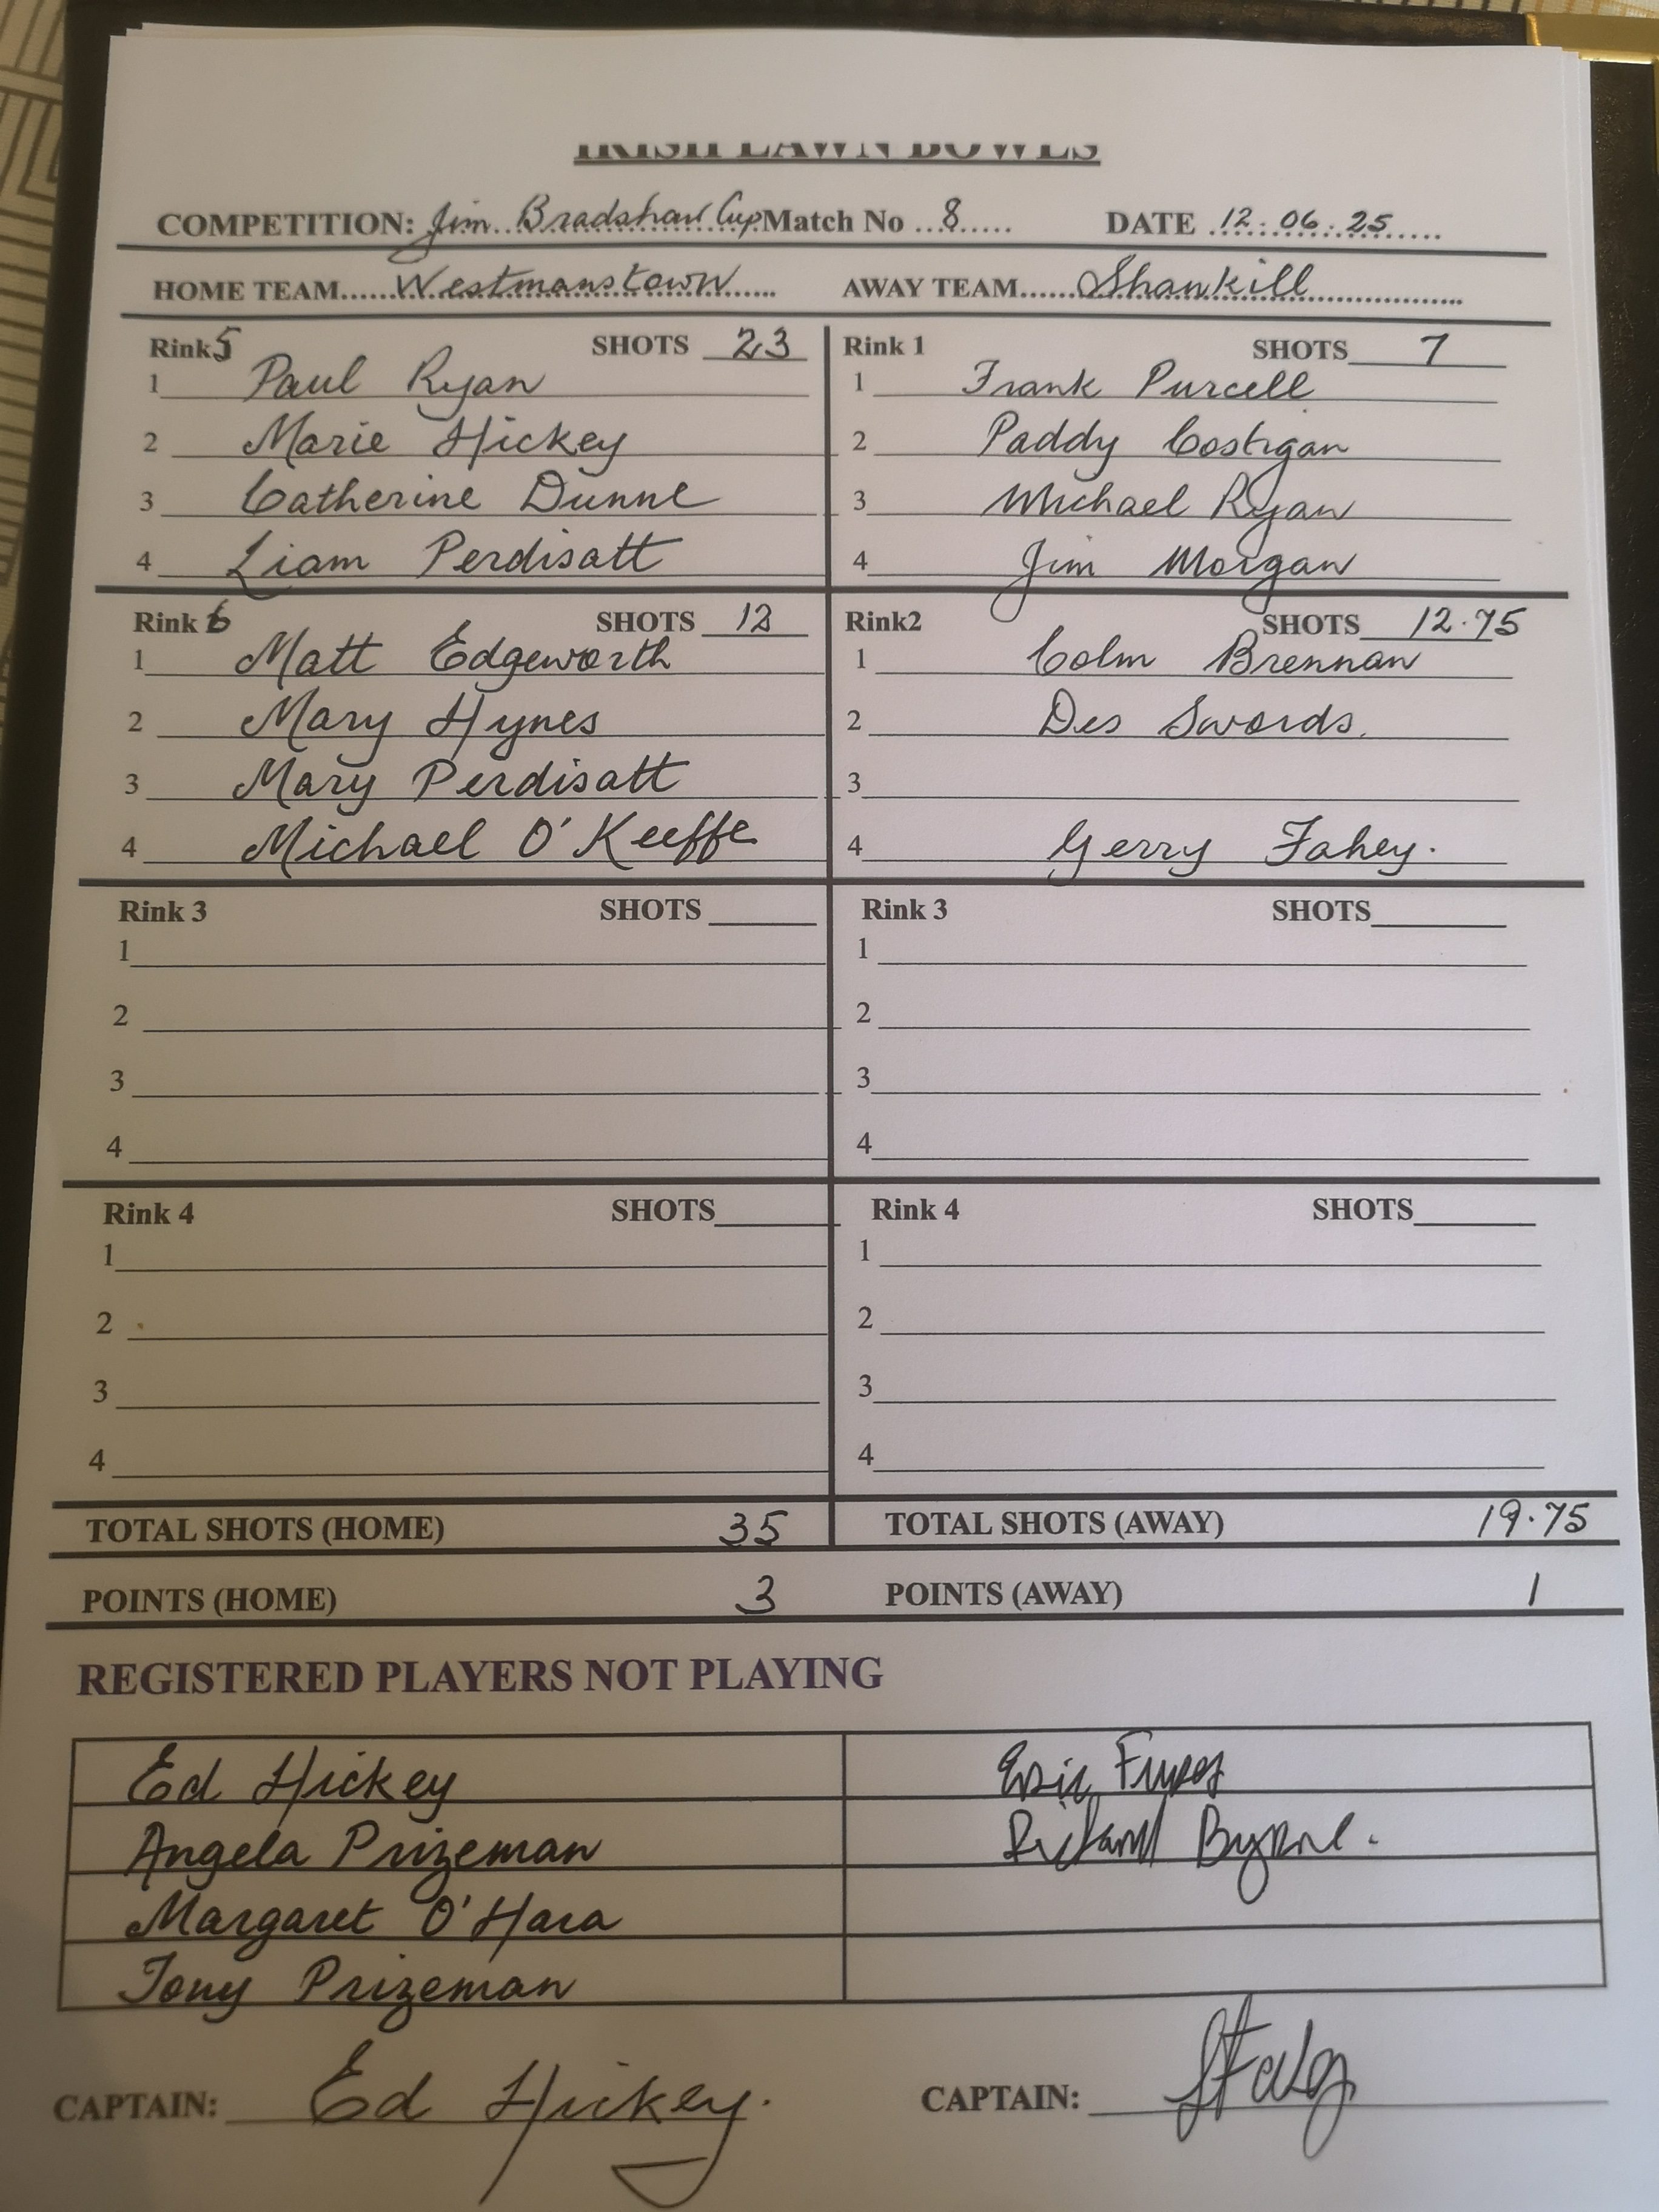 IRISH LAWN BOWLS
COMPETITION: Jim Bradshaw Cup Match No 8 DATE 12.06.25
HOME TEAM Westmanstown AWAY TEAM Shankill
Rink 5 SHOTS 23 Rink 1 SHOTS 7
1 Paul Ryan 1 Frank Purcell
2 Marie Hickey 2 Paddy Costigan
3 Catherine Dunne 3 Michael Ryan
4 Liam Perdisatt 4 Jim Morgan
Rink 6 SHOTS 12 Rink2 SHOTS 12.75
1 Matt Edgeworth 1 Colm Brennan
2 Mary Hynes 2 Des Swords.
3 Mary Perdisatt 3
4 Michael O'Keeffe 4 Gerry Fahey.
Rink 3 SHOTS Rink 3 SHOTS
1 1
2 2
3 3
4 4
Rink 4 SHOTS Rink 4 SHOTS
1 1
2 2
3 3
4 4
TOTAL SHOTS (HOME) 35 TOTAL SHOTS (AWAY) 19.75
POINTS (HOME) 3 POINTS (AWAY) 1
REGISTERED PLAYERS NOT PLAYING
Ed Hickey Eric
Angela Prizeman Richard Byrne.
Margaret O'Hara
Tony Prizeman
CAPTAIN: Ed Hickey. CAPTAIN: